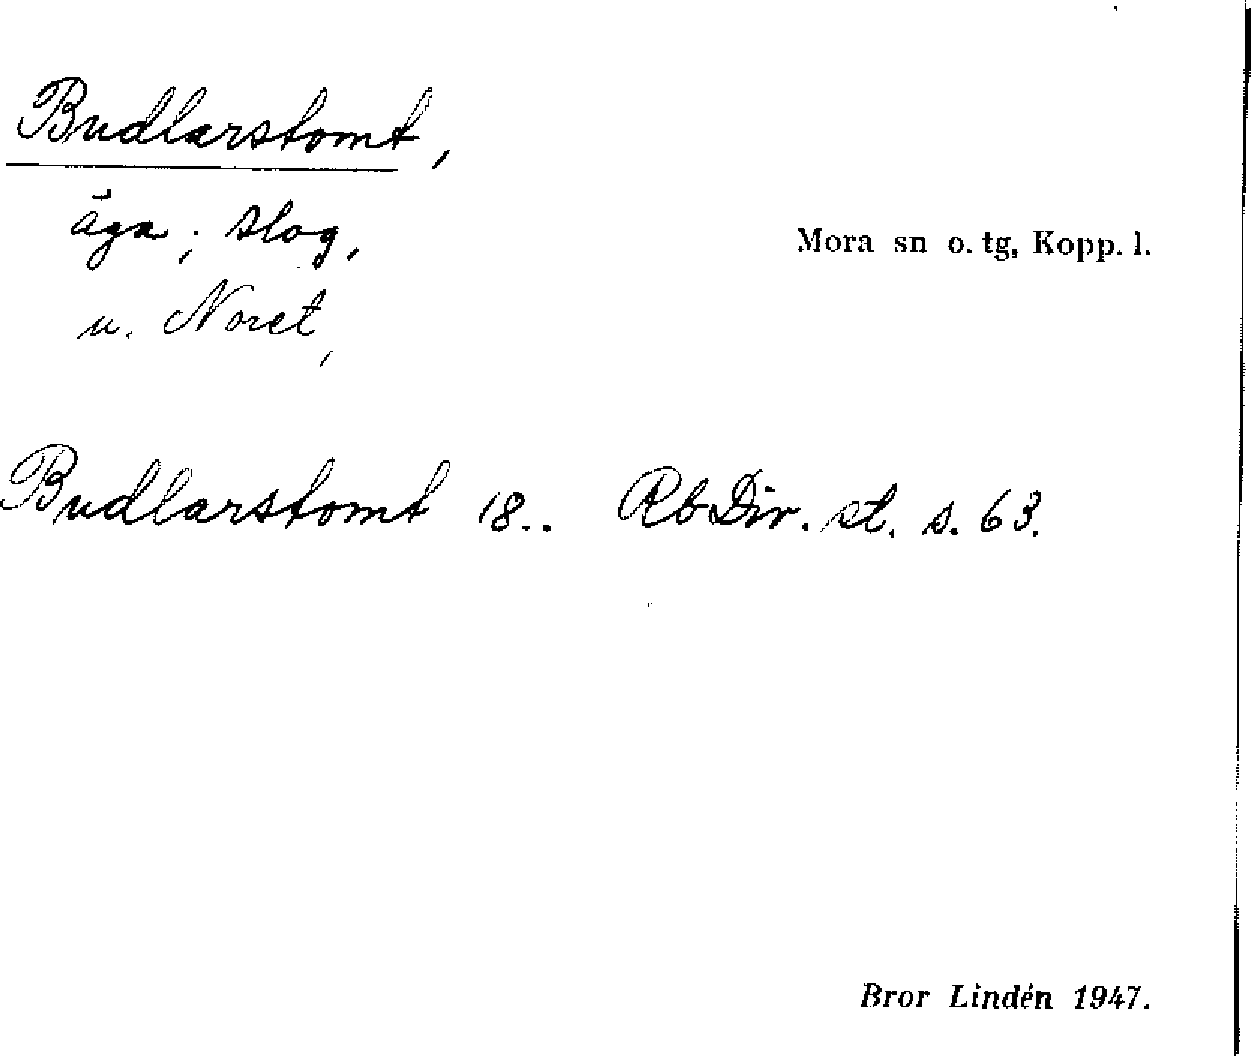 Budlarstomt,
äga; slog,
Mora sn o. tg, Kopp. l.
u. Noret,
Budlarstomt 18.. RbDiv. st. s. 63.
Bror Lindén 1947.